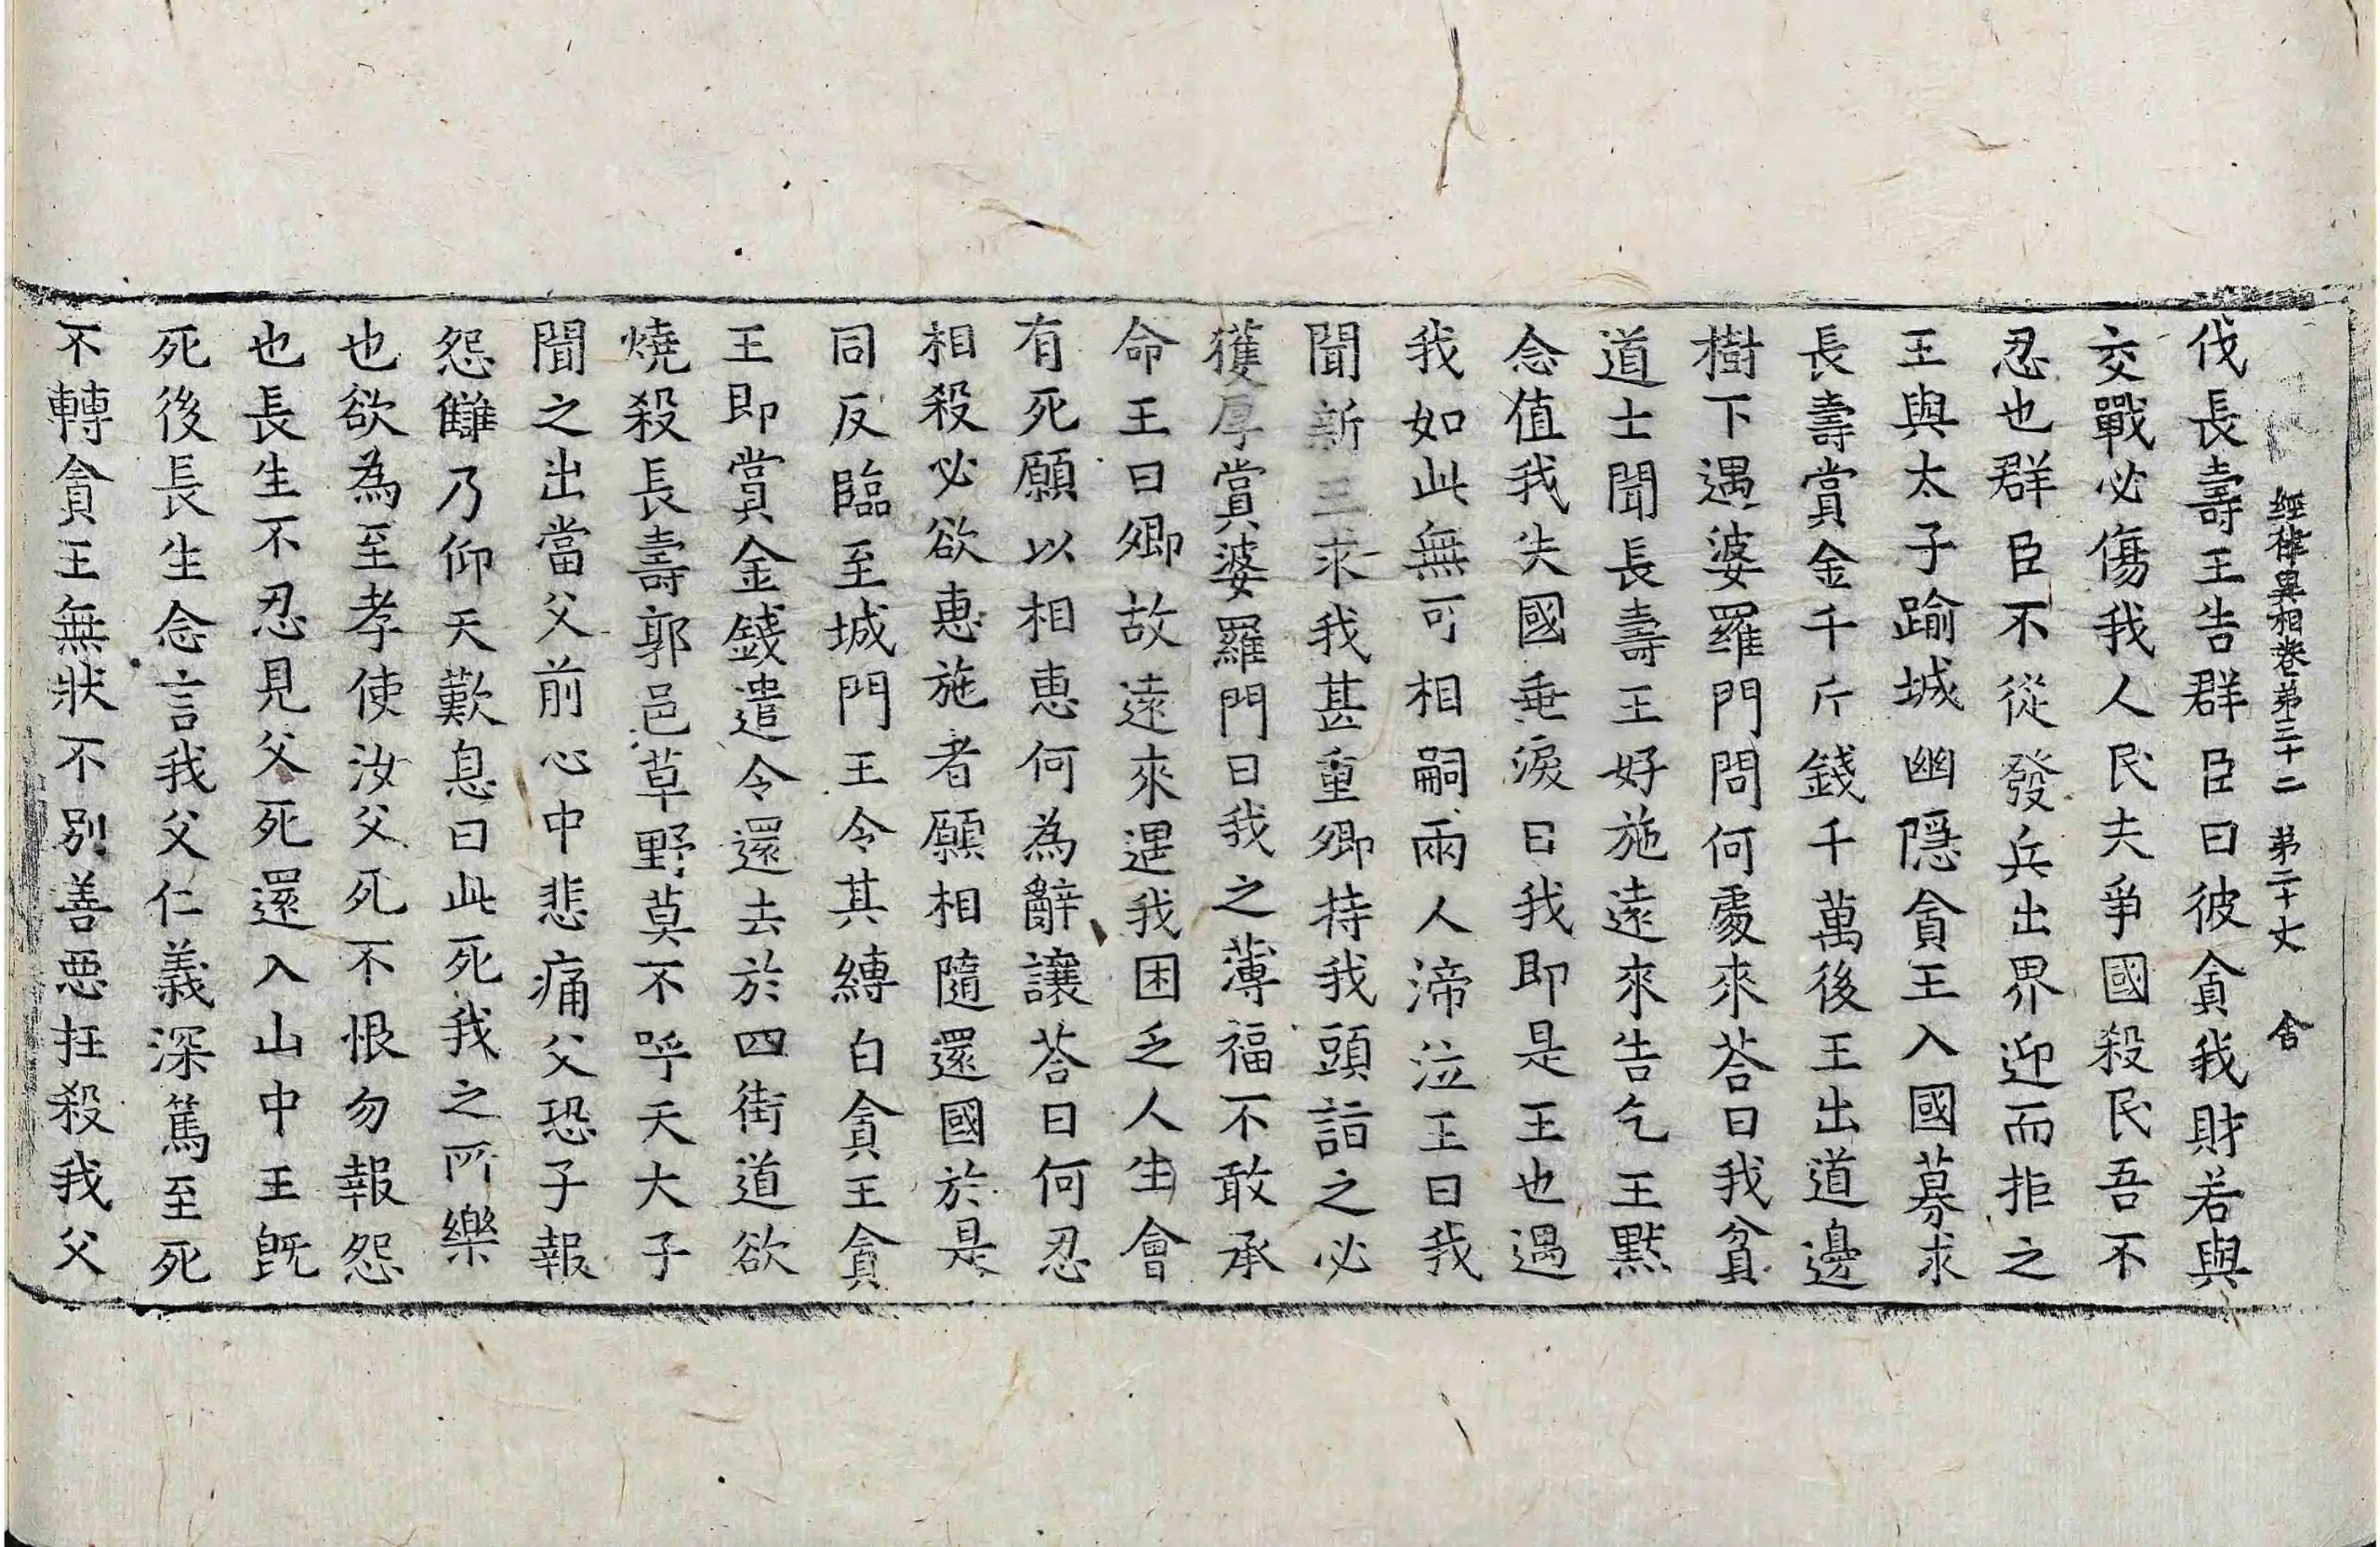 經律異相卷第三十二 第二十丈 舍
伐長壽王告群臣曰彼貪我財若與
交戰必傷我人民夫爭國殺民吾不
忍也群臣不從發兵出界迎而拒之
王與太子踰城幽隱貪王入國募求
長壽賞金千斤錢千萬後王出道邊
樹下遇婆羅門問何處來荅曰我貧
道士聞長壽王好施遠來告乞王黙
念值我失國垂淚曰我即是王也遇
我如此無可相嗣兩人渧泣王曰我
聞新王求我甚重卿持我頭詣之必
獲厚賞婆羅門曰我之薄福不敢承
命王曰卿故遠來遇我困乏人生會
有死願以相惠何為辭讓荅曰何忍
相殺必欲惠施者願相隨還國於是
同反臨至城門王令其縛白貪王貪
王即賞金錢遣令還去於四街道欲
燒殺長壽郭邑草野莫不呼天大子
聞之出當父前心中悲痛父恐子報
怨讎乃仰天歎息曰此死我之所樂
也欲為至孝使汝父死不恨勿報怨
也長生不忍見父死還入山中王旣
死後長生念言我父仁義深篤至死
不轉貪王無狀不別善惡抂殺我父